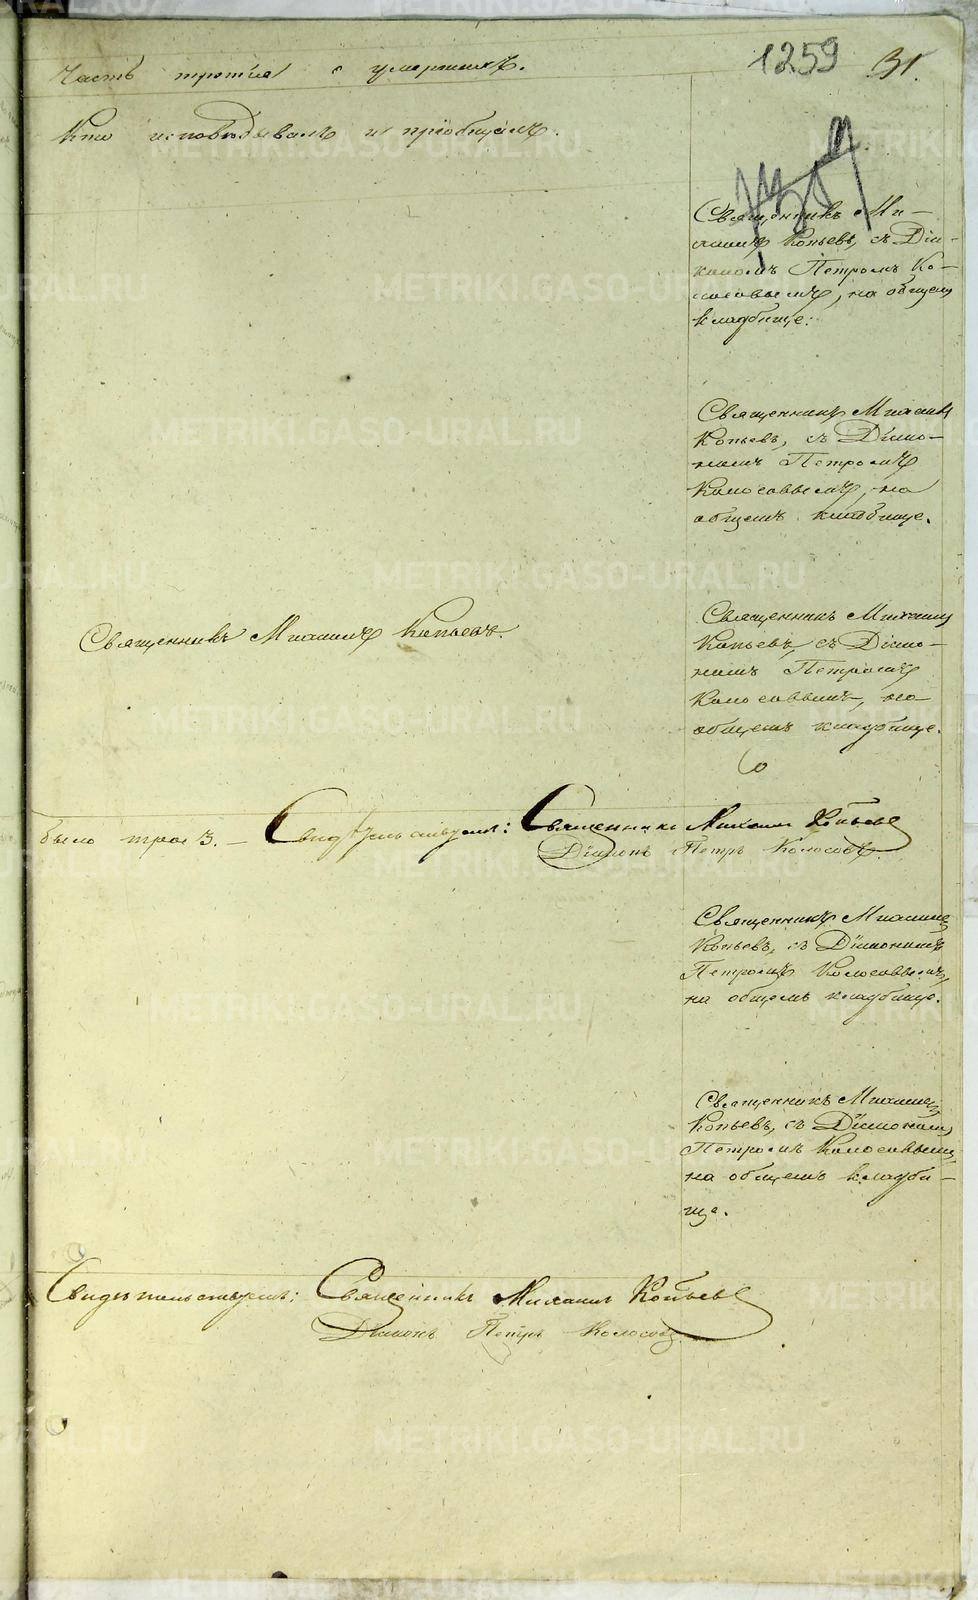 1259 31.
Часть третія о умершихъ.
Кто исповѣдывалъ и пріобщалъ.
Священникъ Ми-
хаилъ Копьевъ, съ Діа-
кономъ Петромъ Ко-
лосовымъ, на общемъ
кладбище.
Священникъ Михаилъ
Копьевъ, съ Діако-
номъ Петромъ
Колосовымъ, на
общемъ кладбище.
Священникъ Михаилъ Копьевъ.
Священникъ Михаилъ
Копьевъ, съ Діако-
номъ Петромъ
Колосовымъ, на
общемъ кладбище.
было трое 3. – Свидѣтельствуемъ: Священникъ Михаилъ Копьевъ
Діаконъ Петръ Колосовъ.
Священникъ Михаилъ
Копьевъ, съ Діакономъ
Петромъ Колосовымъ,
на общемъ кладбище.
Священникъ Михаилъ
Копьевъ, съ Діакономъ
Петромъ Колосовымъ,
на общемъ кладби-
ще.
Свидѣтельствуемъ: Священникъ Михаилъ Копьевъ
Діаконъ Петръ Колосовъ
METRIKI.GASO-URAL.RU